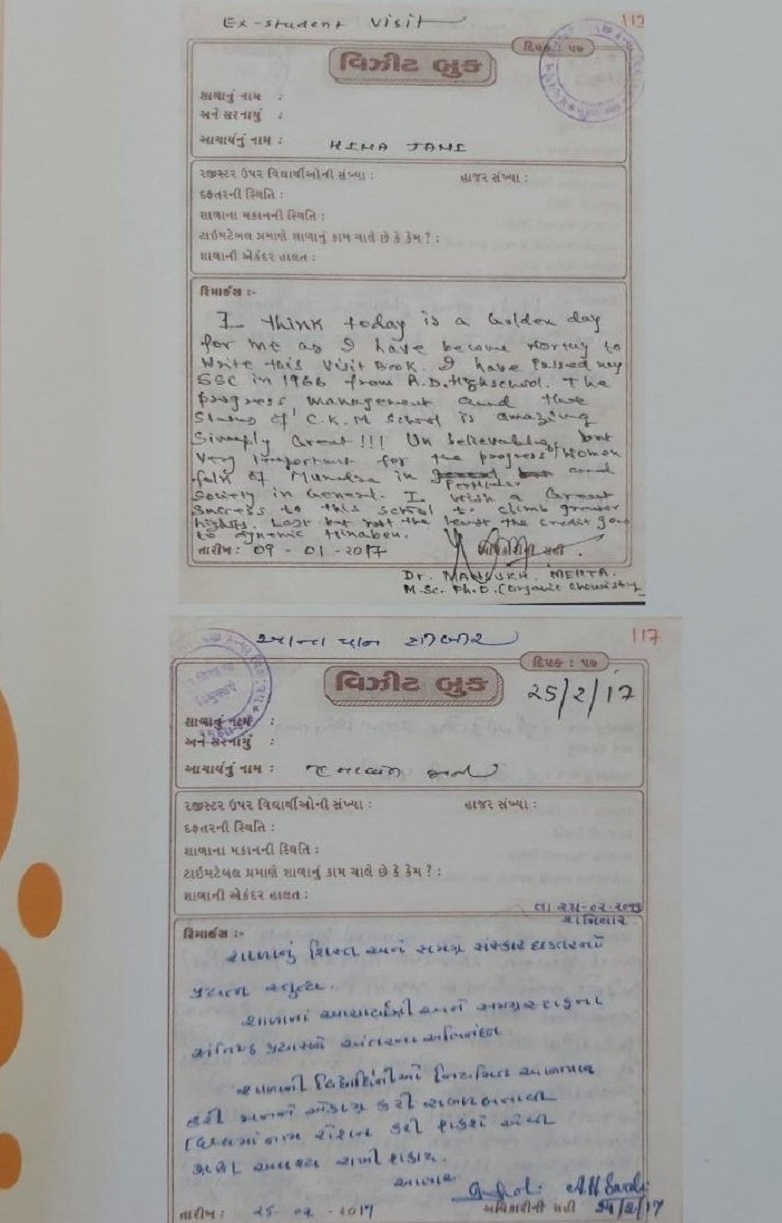 Ex-student Visit
112
દિપક : ૫૭
વિઝીટ બુક
શાળાનું નામ :
અને સરનામું :
આચાર્યનું નામ : HINA JANI
રજીસ્ટર ઉપર વિદ્યાર્થીઓની સંખ્યા : હાજર સંખ્યા :
દફતરની સ્થિતિ :
શાળાના મકાનની સ્થિતિ :
ટાઇમટેબલ પ્રમાણે શાળાનું કામ ચાલે છે કે કેમ ? :
શાળાની એકંદર હાલત :
રિમાર્કસ :-
I think today is a Golden day
for me as I have become wortey to
Write this Visit Book. I have Passed my
SSC in 1966 from R.D. Highschool. The
progress management and the
Status of C.K.M School is amazing
Simply Great !!! Unbelievable, but
Very Important for the progress of Women
folk of Mundra in Perticular and
Society in General. I wish a Great
Success to this school to climb greater
hights. Last but not the least the credit goes
to dynamic Hinaben.
તારીખ : 09 - 01 - 2017 અધિકારીની સહી
Dr. MANSUKH. MEHTA.
M.Sc. Ph.D. (Organic Chemistry
117
દિપક : ૫૭
વિઝીટ બુક 25/2/17
શાળાનું નામ :
અને સરનામું :
આચાર્યનું નામ :
રજીસ્ટર ઉપર વિદ્યાર્થીઓની સંખ્યા : હાજર સંખ્યા :
દફતરની સ્થિતિ :
શાળાના મકાનની સ્થિતિ :
ટાઇમટેબલ પ્રમાણે શાળાનું કામ ચાલે છે કે કેમ ? :
શાળાની એકંદર હાલત :
શનિવાર
રિમાર્કસ :-
શાળાનું શિસ્ત અને સમગ્ર સંસ્કાર
પ્રયત્ન સ્તુત્ય.
શાળાનાં આચાર્યાશ્રી અને સમગ્ર સ્ટાફના
અંતરના અભિનંદન.
શાળાની વિદ્યાર્થિનીઓ નિયમિત
કરી મનને એકાગ્ર કરી
વિશ્વમાં નામ રોશન કરી શકશે એવી
આભાર
તારીખ : 25 02 - 2017 અધિકારીની સહી